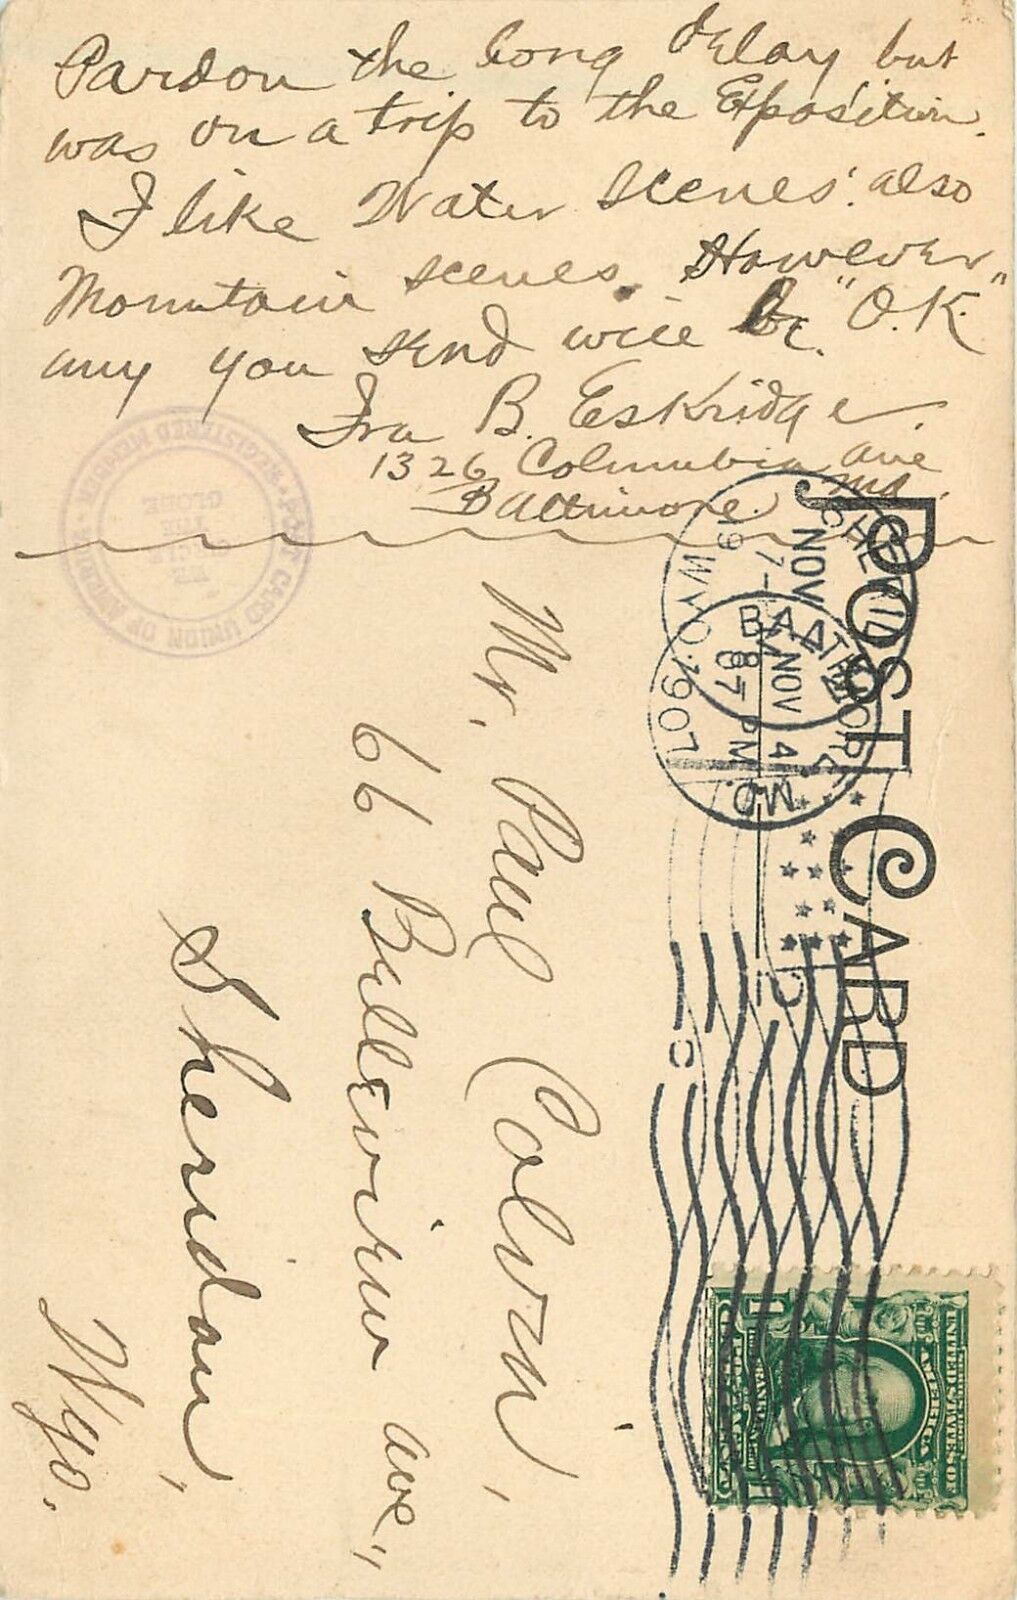 Pardon the long delay but
was on a trip to the Exposition.
I like Water scenes. also
Mountain scenes. However
any you send will be "O.K."
Ira B. Eskridge.
1326 Columbia ave
Baltimore Md.
POST CARD UNION OF AMERICA
REGISTERED MEMBER
GLOBE
POST CARD
SHERIDAN
NOV
7-
WYO. 1907
BALTIMORE, MD.
NOV 4
8 PM
07
Mr. Paul Colvin,
66 Belleview ave.,
Sheridan,
Wyo.
UNITED STATES OF
AMERICA